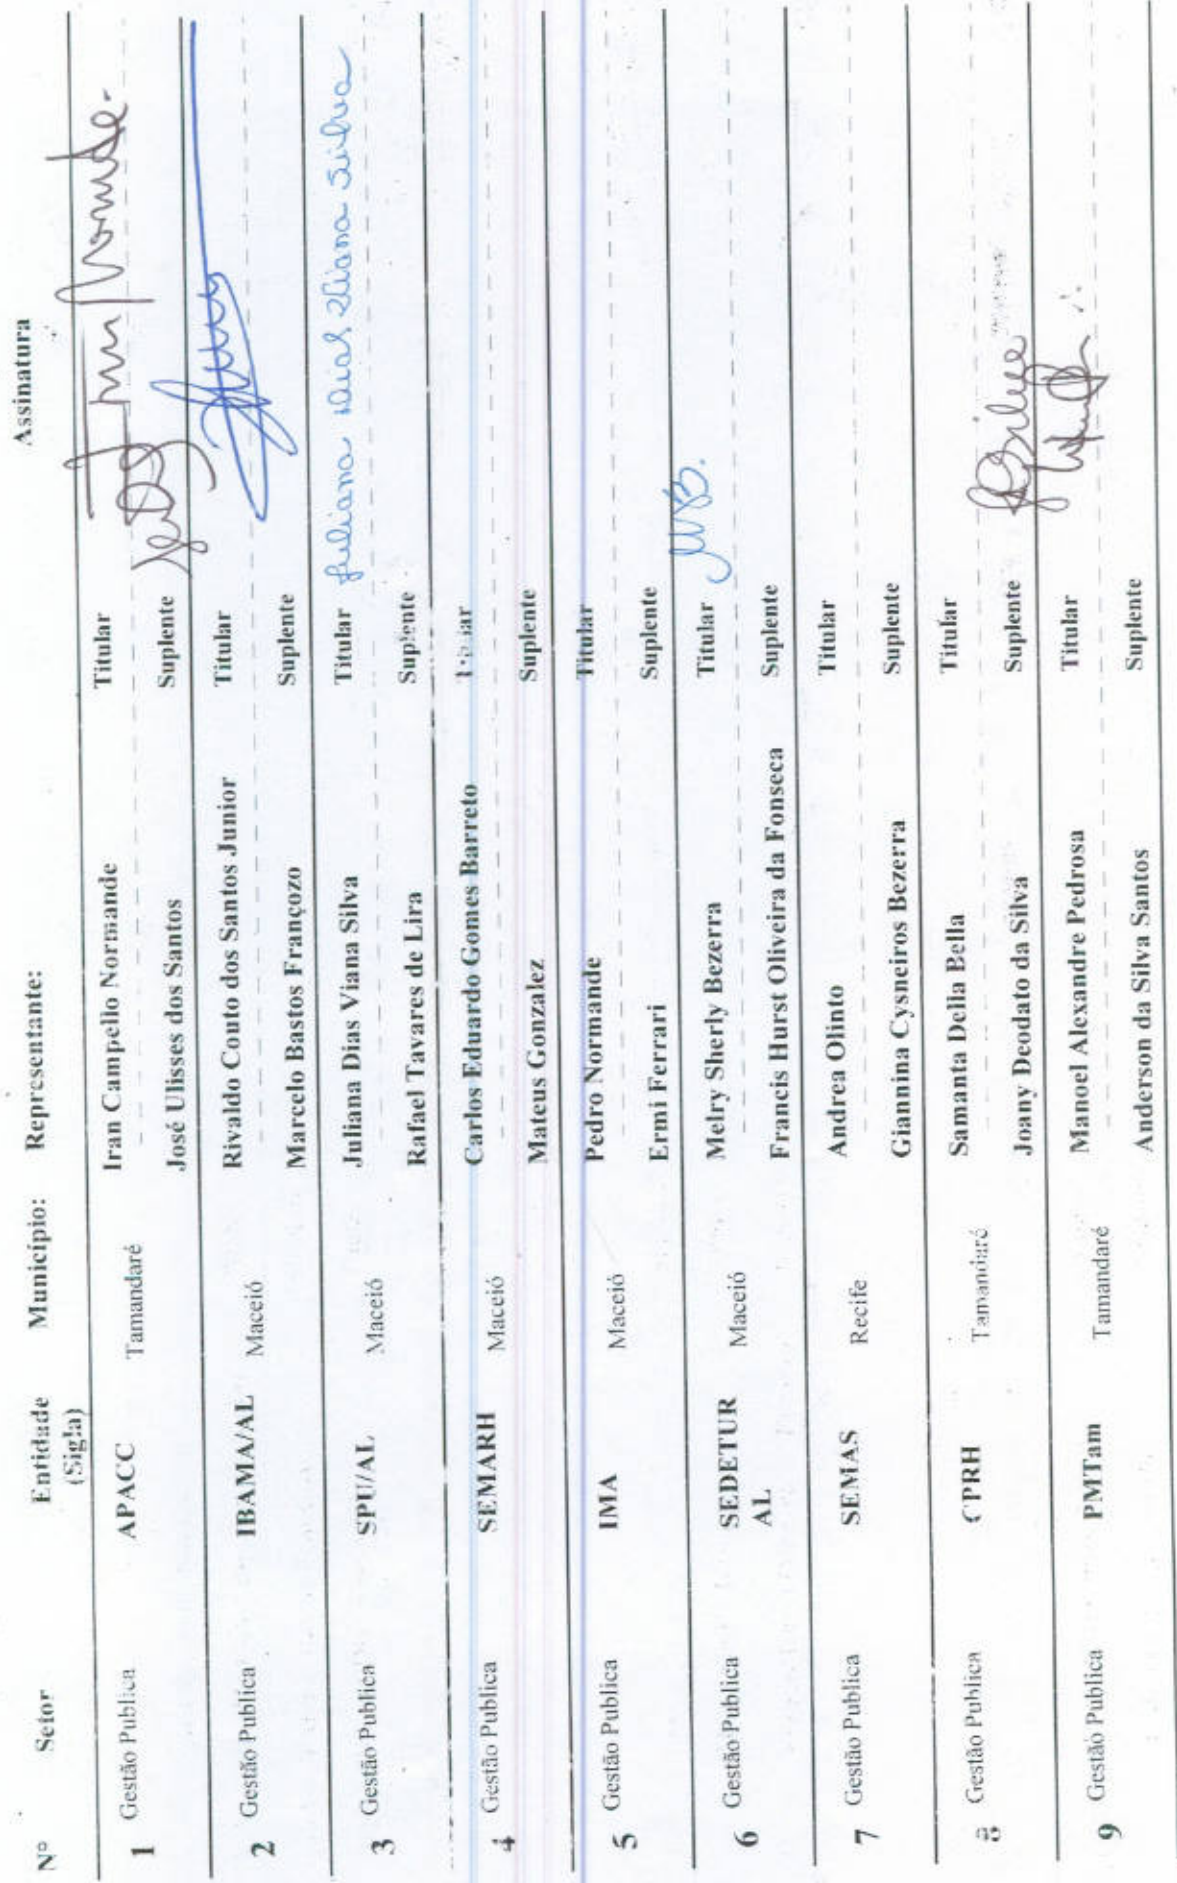 Nº Setor Entidade (Sigla) Município: Representante: Assinatura
1 Gestão Publica APACC Tamandaré Iran Campello Normande Titular
José Ulisses dos Santos Suplente
2 Gestão Publica IBAMA/AL Maceió Rivaldo Couto dos Santos Junior Titular
Marcelo Bastos Françozo Suplente
3 Gestão Publica SPU/AL Maceió Juliana Dias Viana Silva Titular Juliana Dias Viana Silva
Rafael Tavares de Lira Suplente
4 Gestão Publica SEMARH Maceió Carlos Eduardo Gomes Barreto Titular
Mateus Gonzalez Suplente
5 Gestão Publica IMA Maceió Pedro Normande Titular
Ermi Ferrari Suplente
6 Gestão Publica SEDETUR AL Maceió Melry Sherly Bezerra Titular MSB.
Francis Hurst Oliveira da Fonseca Suplente
7 Gestão Publica SEMAS Recife Andrea Olinto Titular
Giannina Cysneiros Bezerra Suplente
8 Gestão Publica CPRH Tamandaré Samanta Della Bella Titular
Joany Deodato da Silva Suplente
9 Gestão Publica PMTam Tamandaré Manoel Alexandre Pedrosa Titular
Anderson da Silva Santos Suplente